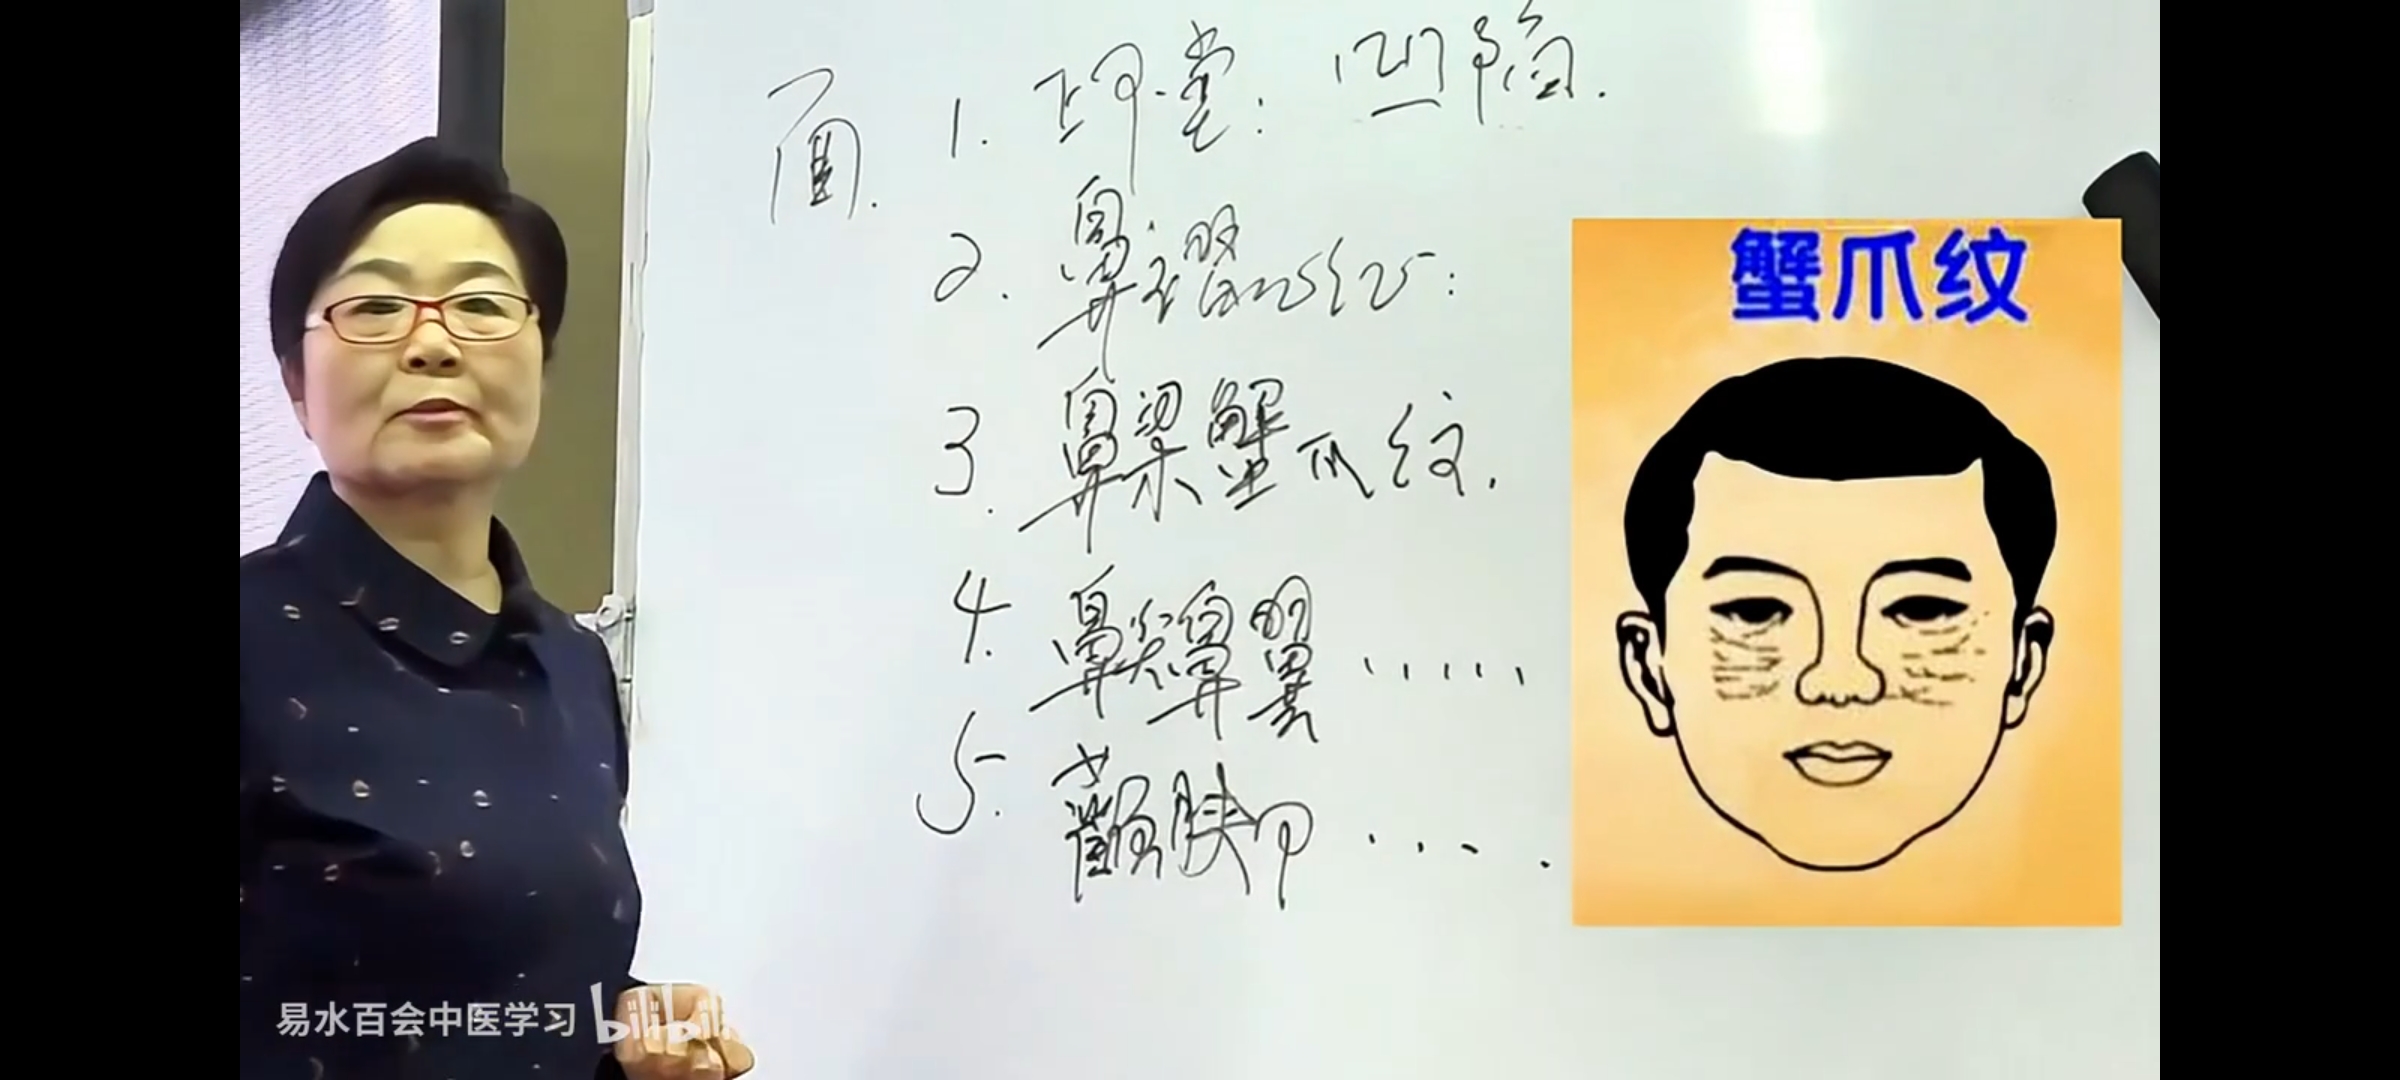 面.
1. 印堂: 凹陷.
2. 鼻
3. 鼻梁蟹爪纹.
4. 鼻尖鼻翼 .....
5. 颧 ....
蟹爪纹
易水百会中医学习 bilibili